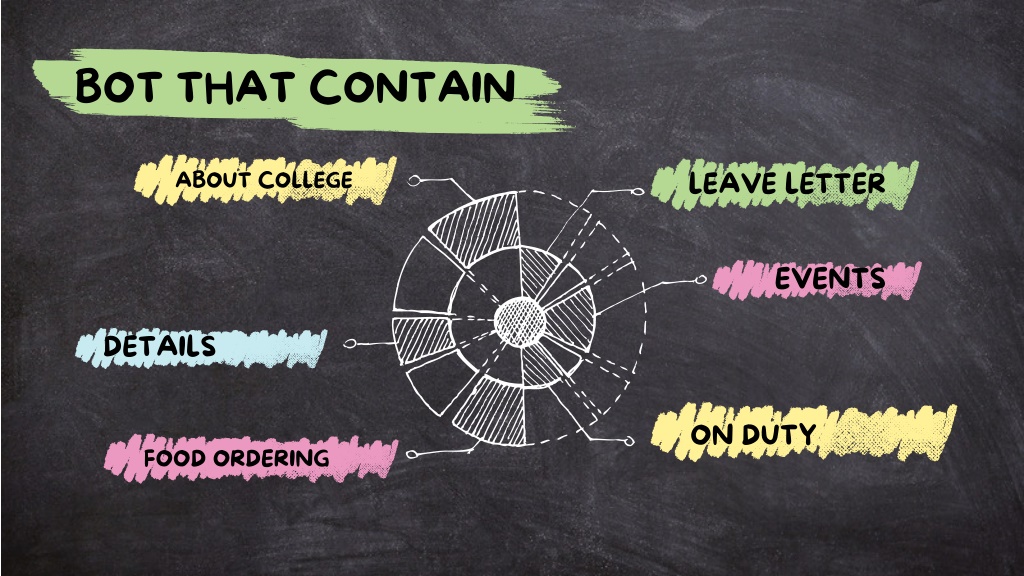 BOT THAT CONTAIN
ABOUT COLLEGE
LEAVE LETTER
EVENTS
DETAILS
ON DUTY
FOOD ORDERING